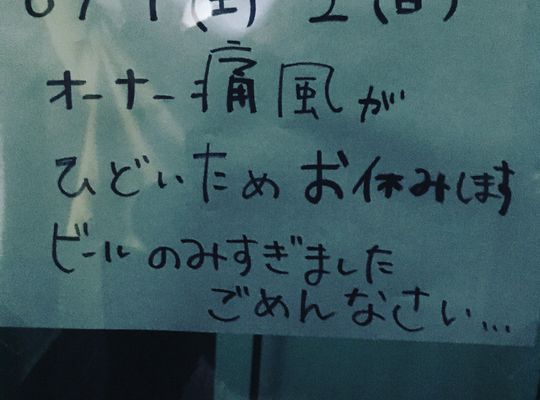 1(土) 2(日)
オーナー痛風が
ひどいため お休みします
ビールのみすぎました
ごめんなさい...